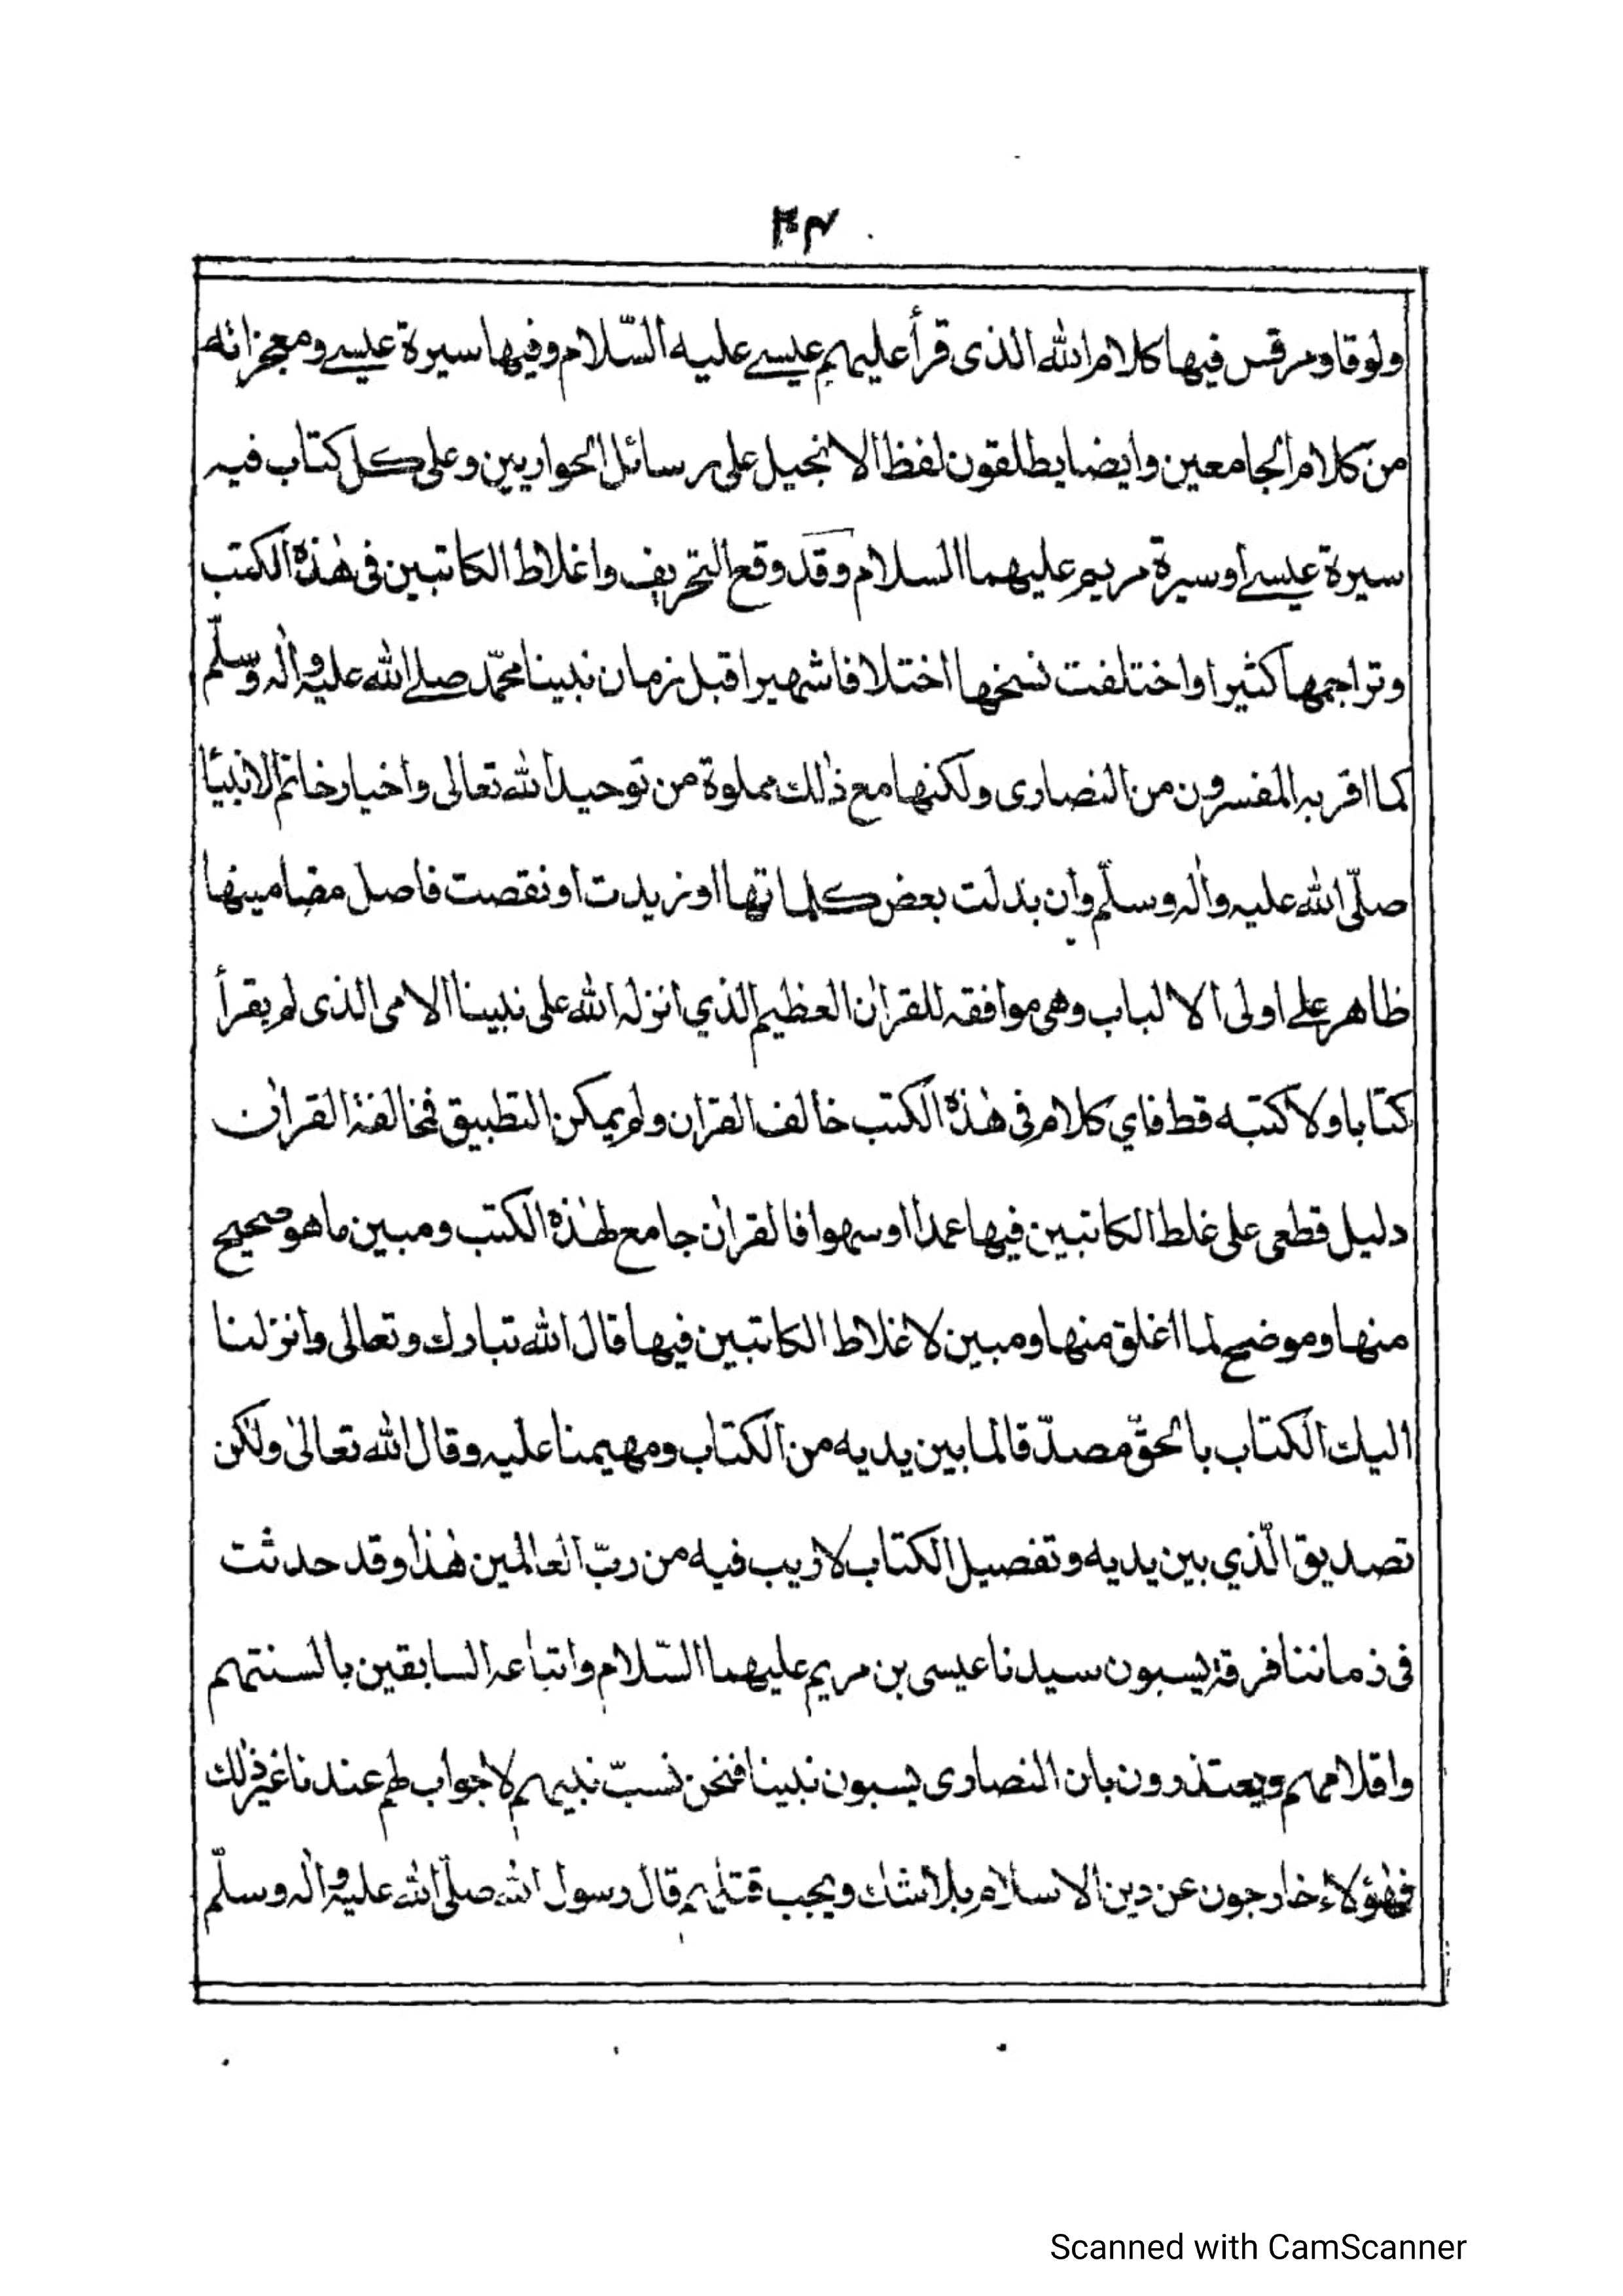 ولوقا ومرقس فيها كلام الله الذى قرأ عليهم عيسے عليه السّلام وفيها سيرة عيسے ومعجزاته
من كلام الجامعين وايضا يطلقون لفظ الانجيل على رسائل الحواريين وعلى كل كتاب فيه
سيرة عيسے او سيرة مريم عليهما السلام وقد وقع التحريف واغلاط الكاتبين فى هٰذه الكتب
وتراجمها كثيرا واختلفت نسخها اختلافا شهيرا قبل زمان نبينا محمّد صلے الله عليه واٰله وسلّم
كما اقر به المفسرون من النصارى ولكنها مع ذٰلك مملوة من توحيد الله تعالى واخبار خاتم الانبيا
صلّى الله عليه واٰله وسلّم وان بدلت بعض كلماتها او زيدت او نقصت فاصل مضامينها
ظاهر علے اولى الالباب وهى موافقه للقراٰن العظيم الذي انزله الله على نبينا الامى الذى لم يقرأ
كتابا ولا كتبه قط فاي كلام فى هٰذه الكتب خالف القراٰن ولم يمكن التطبيق فمخالفة القراٰن
دليل قطعى على غلط الكاتبين فيها عمدا او سهوا فالقراٰن جامع لهٰذه الكتب ومبين ما هو صحيح
منها وموضح لما اغلق منها ومبين لاغلاط الكاتبين فيها قال الله تبارك وتعالى وانزلنا
اليك الكتاب بالحقّ مصدّقا لما بين يديه من الكتاب ومهيمنا عليه وقال الله تعالىٰ ولٰكن
تصديق الّذي بين يديه وتفصيل الكتاب لا ريب فيه من ربّ العالمين هٰذا وقد حدثت
فى زماننا فرقة يسبون سيدنا عيسى بن مريم عليهما السّلام واتباعه السابقين بالسنتهم
واقلامهم ويعتذرون بان النصارى يسبون نبينا فنحن نسبّ نبيهم لا جواب لهم عندنا غير ذٰلك
فهٰؤلاء خارجون عن دين الاسلام بلا شك ويجب قتلهم قال رسول الله صلّى الله عليه واٰله وسلّم
Scanned with CamScanner